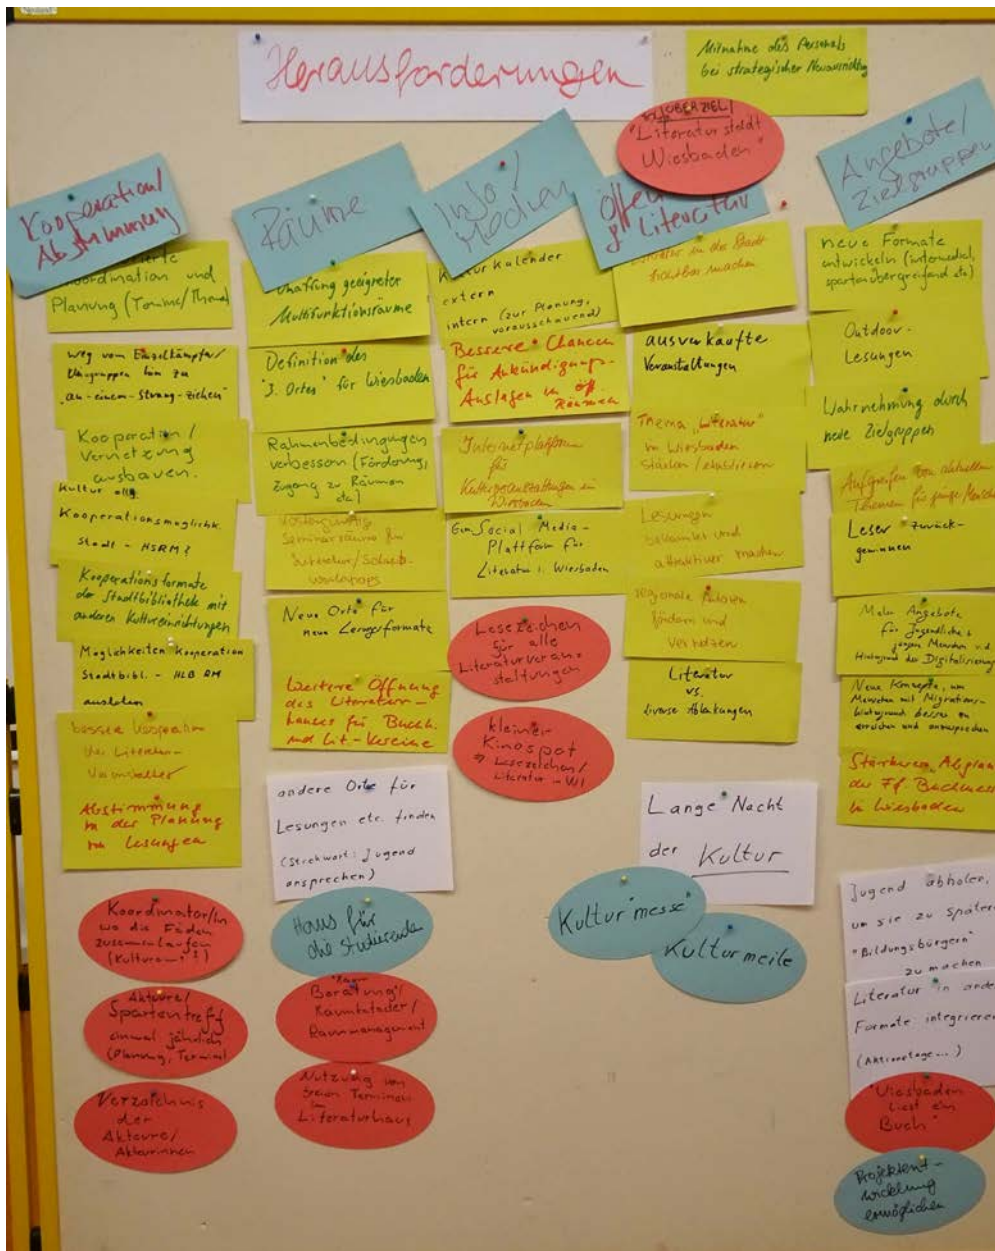 Herausforderungen
Mitnahme des Personals
bei strategischer Neuausrichtung
OBERZIEL!
"Literaturstadt
Wiesbaden"
Kooperation/
Abstimmung
Koordination und
Planung (Termine/Themen)
weg vom Einzelkämpfer/
Kleingruppen hin zu
"an-einem-Strang-ziehen"
Kooperation/
Vernetzung
ausbauen.
Kultur
Kooperationsmöglichk.
Stadt - HSRM?
Kooperationsformate
der Stadtbibliothek mit
anderen Kultureinrichtungen
Möglichkeiten Kooperation
Stadtbibl. - HLB RM
ausloten
bessere Kooperation
der Literatur-
Veranstalter
Abstimmung
in der Planung
von Lesungen
Koordinator/in
wo die Fäden
zusammenlaufen
Akteure/
Spartentreff
einmal jährlich
(Planung, Termine)
Verzeichnis
der
Akteure/
Akteurinnen
Räume
Schaffung geeigneter
Multifunktionsräume
Definition des
"3. Ortes" für Wiesbaden
Rahmenbedingungen
verbessern (Förderung,
Zugang zu Räumen
etc)
kostengünstige
Seminarräume für
Literatur/Schreib-
workshops
Neue Orte für
neue Leseformate
Weitere Öffnung
des Literatur-
hauses für Buch
und Lit.-Vereine
andere Orte für
Lesungen etc. finden
(Stichwort: Jugend
ansprechen)
Haus für
die Studierenden
"Raum
Beratung"/
Raumkataster/
Raummanagement
Nutzung von
freien Terminen
im
Literaturhaus
Info/
Medien
Kulturkalender
extern
intern (zur Planung,
vorausschauend)
Bessere Chancen
für Ankündigungs-
Auslagen in öff.
Räumen
Internetplattform
für
Kulturveranstaltungen in
Wiesbaden
Ein Social Media-
Plattform für
Literatur i. Wiesbaden
Lesezeichen
für alle
Literaturveran-
staltungen
kleiner
Kinospot
⇒ Lesezeichen/
Literatur - WI
Literatur
Literatur in der Stadt
sichtbar machen
ausverkaufte
Veranstaltungen
Thema "Literatur"
in Wiesbaden
stärken / etablieren
Lesungen
bekannter und
attraktiver machen
regionale Autoren
fördern und
vernetzen
Literatur
vs.
diverse Ablenkungen
Lange Nacht
der Kultur
Kultur"messe"
Kulturmeile
Angebote/
Zielgruppen
neue Formate
entwickeln (intermedial,
spartenübergreifend etc)
Outdoor-
Lesungen
Wahrnehmung durch
neue Zielgruppen
Aufgreifen von aktuellen
Themen für junge Menschen
Leser zurück-
gewinnen
Mehr Angebote
für Jugendliche &
jungen Menschen v.d.
Hintergrund der Digitalisierung
Neue Konzepte, um
Menschen mit Migrations-
hintergrund besser zu
erreichen und anzusprechen
Stärkeres Abgrasen
der Ff. Buchmesse
in Wiesbaden
Jugend abholen,
um sie zu späteren
"Bildungsbürgern"
zu machen
Literatur in ande
Formate integrieren
(Aktionstage...)
"Wiesbaden
liest ein
Buch"
Projektent-
wicklung
ermöglichen